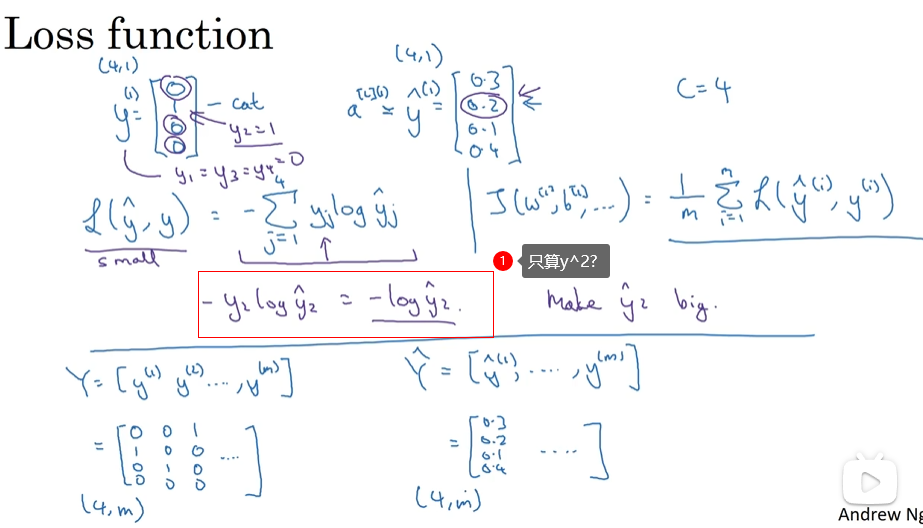 Loss function
(4,1)
y⁽ⁱ⁾ = [0 1 0 0] - cat
y₂=1
y₁ = y₃ = y₄ = 0
(4,1)
a^[L](i) = ŷ⁽ⁱ⁾ = [0.3 0.2 0.1 0.4]
C=4
ℒ(ŷ, y) = - Σ_{j=1}^{4} yⱼ log ŷⱼ
small
J(w^[1], b^[1], ....) = 1/m Σ_{i=1}^{m} ℒ(ŷ⁽ⁱ⁾, y⁽ⁱ⁾)
1 只算y^2?
- y₂ log ŷ₂ = - log ŷ₂.
Make ŷ₂ big.
Y = [y⁽¹⁾ y⁽²⁾ ...., y⁽ᵐ⁾]
Ŷ = [ŷ⁽¹⁾, ...., y⁽ᵐ⁾]
= [0 0 1
1 0 0 ....
0 1 0
0 0 0]
(4,m)
= [0.3
0.2
0.1 ....
0.4]
(4,m)
Andrew Ng